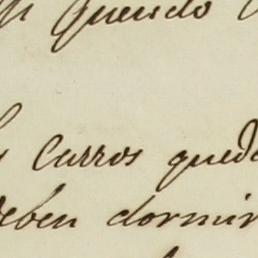 Querido
Curros qued
deben dormir